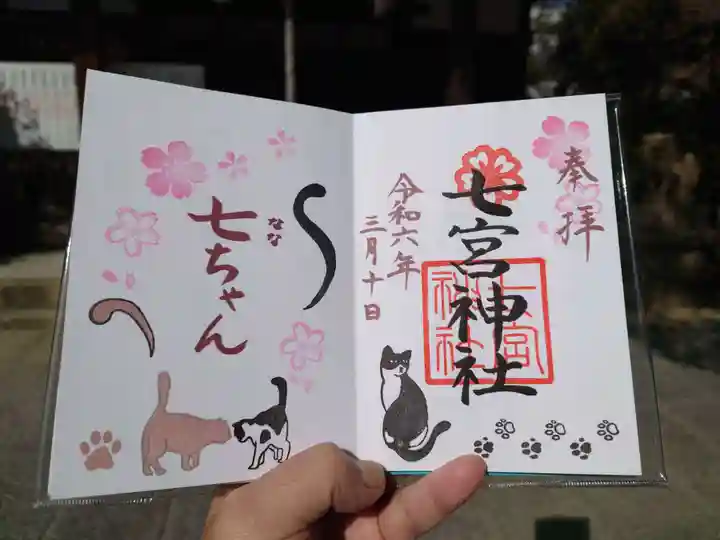 奉拝
七宮神社
七宮
神社
令和六年
三月十日
七ちゃん
なな